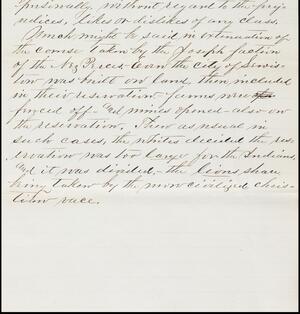 partially, without regard to the prej-
udices, likes or dislikes of any class.
Much might be said in extenuation of
the course taken by the Joseph faction
of the Nez Perces. Even the city of Lewis-
ton was built on land then included
in their reservation - farms were
fenced off - and mines opened - also on
the reservation. Then as usual in
such cases, the whites decided the res-
ervation was too large for the Indians,
and it was divided, - the lions share
being taken by the more civilized chris-
tian race.